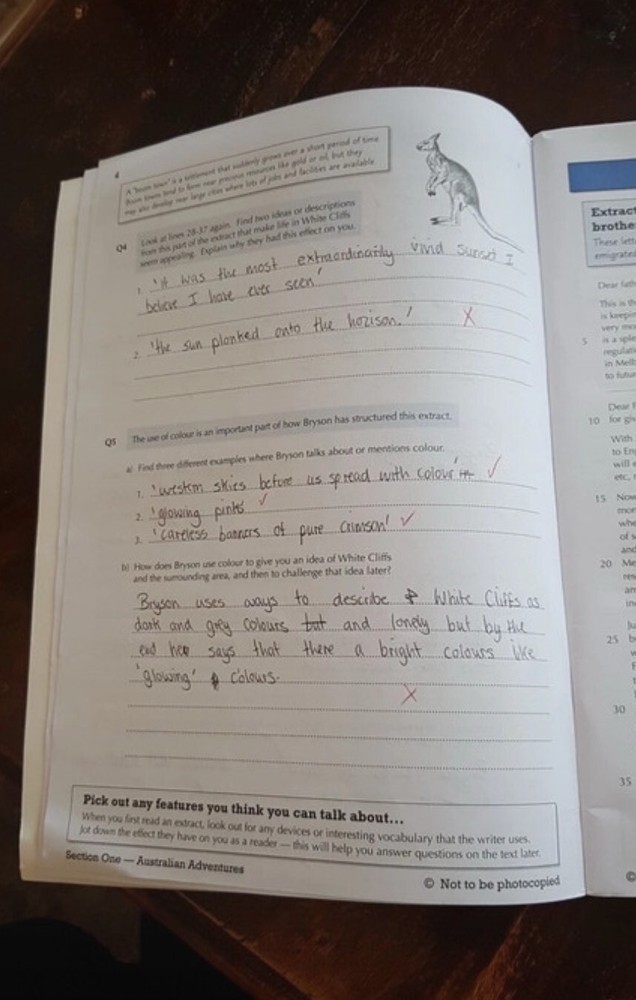 4
A "boom town" is a settlement that suddenly grows over a short period of time.
Boom towns tend to form near precious resources like gold or oil, but they
may also develop near large cities where lots of jobs and facilities are available.
Q4 Look at lines 28-37 again. Find two ideas or descriptions
from this part of the extract that make life in White Cliffs
seem appealing. Explain why they had this effect on you.
1. 'it was the most extraordinarily vivid sunset I
believe I have ever seen'
2. 'the sun plonked onto the horizon.' X
Q5 The use of colour is an important part of how Bryson has structured this extract.
a) Find three different examples where Bryson talks about or mentions colour.
1. 'western skies before us spread with colour' ✓
2. 'glowing pinks' ✓
3. 'careless banners of pure crimson' ✓
b) How does Bryson use colour to give you an idea of White Cliffs
and the surrounding area, and then to challenge that idea later?
Bryson uses ways to describe White Cliffs as
dark and grey colours but and lonely but by the
end he says that there a bright colours like
'glowing' colours.
X
Pick out any features you think you can talk about...
When you first read an extract, look out for any devices or interesting vocabulary that the writer uses.
Jot down the effect they have on you as a reader — this will help you answer questions on the text later.
Section One — Australian Adventures
© Not to be photocopied
Extract
brothe
These lett
emigrated
Dear fath
This is th
is keepin
very mo
5 is a sple
regulati
in Melb
to futur
Dear
10 for giv
With
to En
will
etc,
15 Now
mor
whe
of s
and
20 Me
res
an
in
Ju
25
30
35
©